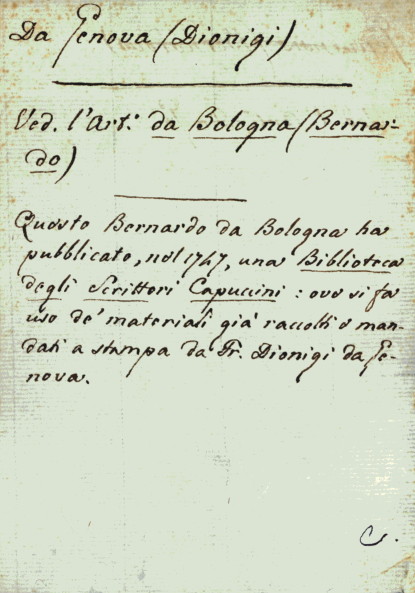 Da Genova (Dionigi)
Ved. l'Art.º da Bologna (Bernar-
do)
Questo Bernardo da Bologna ha
pubblicato, nel 1747, una Biblioteca
degli Scrittori Capuccini : ove si fa
uso de' materiali già raccolti e man-
dati a stampa da Fr. Dionigi da Ge-
nova.
C.